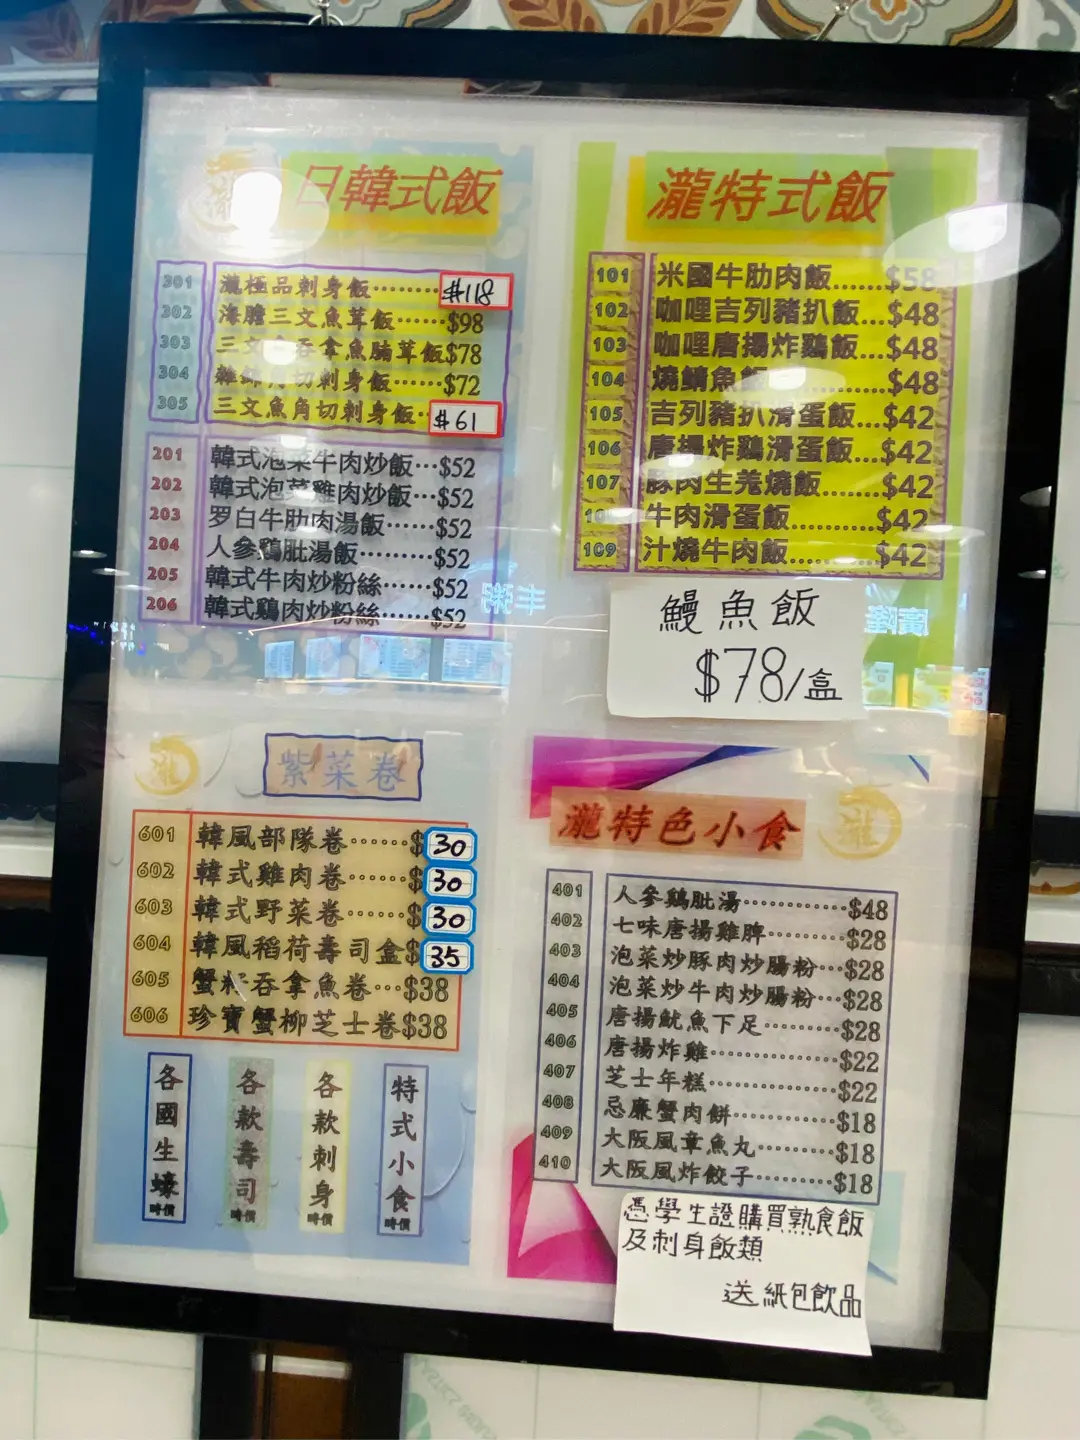 瀧
日韓式飯
301 瀧極品刺身飯………$118
302 海膽三文魚茸飯……$98
303 三文 吞拿魚腩茸飯$78
304 雜錦角切刺身飯……$72
305 三文魚角切刺身飯‥$61
201 韓式泡菜牛肉炒飯…$52
202 韓式泡菜雞肉炒飯…$52
203 罗白牛肋肉湯飯……$52
204 人參鷄肶湯飯………$52
205 韓式牛肉炒粉絲……$52
206 韓式鷄肉炒粉絲……$52
瀧特式飯
101 米國牛肋肉飯……$58
102 咖哩吉列豬扒飯…$48
103 咖哩唐揚炸鷄飯…$48
104 燒鯖魚飯 $48
105 吉列豬扒滑蛋飯…$42
106 唐揚炸鷄滑蛋飯…$42
107 豚肉生羌燒飯……$42
牛肉滑蛋飯………$42
109 汁燒牛肉飯………$42
鰻魚飯
$78/盒
瀧
紫菜卷
601 韓風部隊卷……$30
602 韓式雞肉卷……$30
603 韓式野菜卷……$30
604 韓風稻荷壽司盒$35
605 蟹籽吞拿魚卷…$38
606 珍寶蟹柳芝士卷$38
各國生蠔時價
各款壽司時價
各款刺身時價
特式小食時價
瀧特色小食
瀧
401 人參鷄肶湯…………$48
402 七味唐揚雞脾………$28
403 泡菜炒豚肉炒腸粉…$28
404 泡菜炒牛肉炒腸粉…$28
405 唐揚魷魚下足………$28
406 唐揚炸雞……………$22
407 芝士年糕……………$22
408 忌廉蟹肉餅…………$18
409 大阪風章魚丸………$18
410 大阪風炸餃子………$18
憑學生證購買熟食飯
及刺身飯類
送紙包飲品